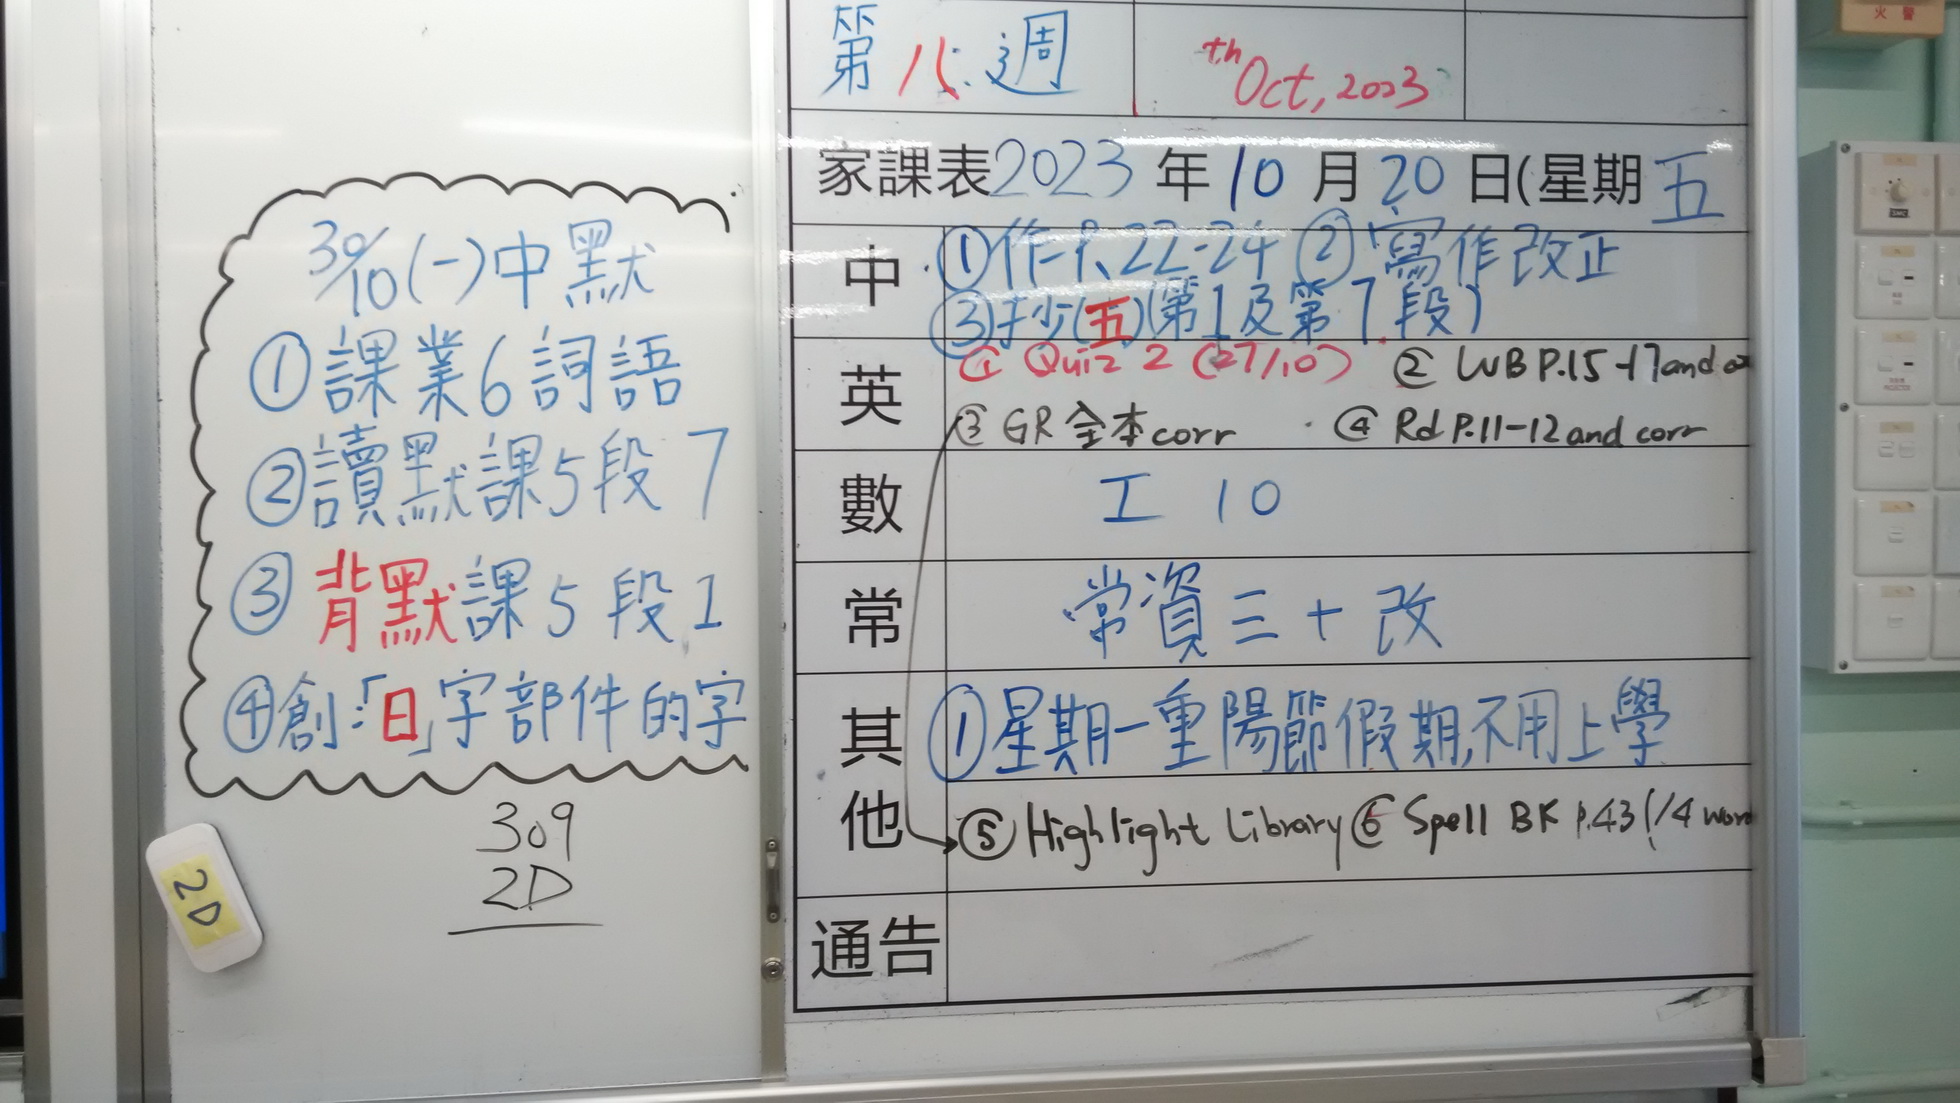 火警
第八週
th Oct, 2023
家課表2023年10月20日(星期五
中 ①作P.22-24 ②寫作改正
③抄(五)(第1及第7段)
英 ① Quiz 2 (27/10) ② WB P.15-17 and
③ GR 全本 corr ④ Rd P.11-12 and corr
數 工 10
常 常資三+改
其他 ①星期一重陽節假期,不用上學
⑤ Highlight Library ⑥ Spell BK p.43 (14 word
通告
30/10 (一)中默
①課業6詞語
②讀默課5段7
③背默課5段1
④創:「日」字部件的字
309
2D
2D